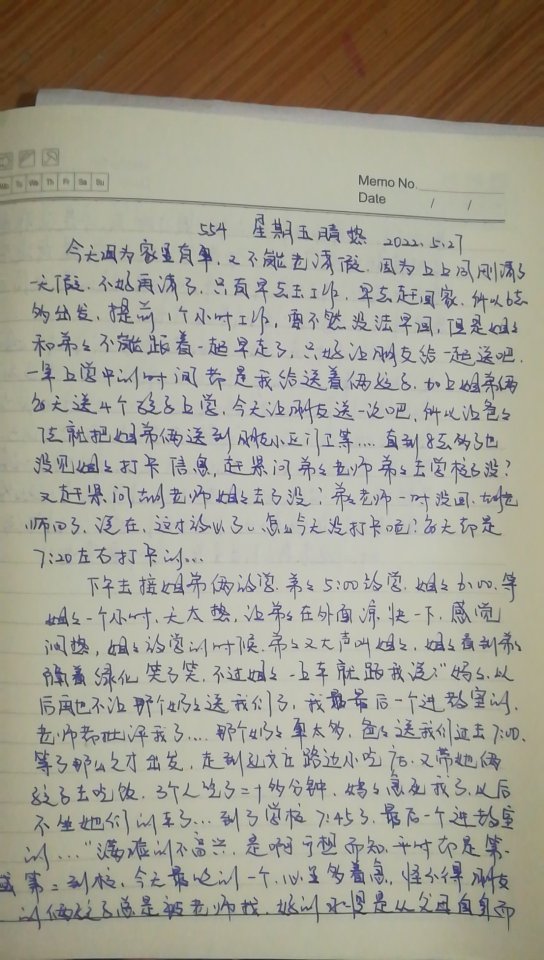 Mo Tu We Th Fr Sa Su
Memo No.
Date / /
554 星期五晴热 2022.5.27
今天因为家里有事,又不能老请假,因为上上周刚请了
一天假,不好再请了,只有早点去工作,早点赶回家,所以6点
多出发,提前1个小时工作,要不然没法早回,但是姐姐
和弟弟不能跟着一起早走了,只好让朋友给一起送吧,
一年上学中的时间都是我给送着俩孩子,加上姐弟俩
每天送4个孩子上学,今天让朋友送一次吧,所以让爸爸
7点就把姐弟俩送到朋友小区门口等…直到8点多了也
没见姐姐打卡信息,赶紧问弟弟老师弟弟去学校了没?
又赶紧问姐姐老师姐姐去了没?弟弟老师一时没回,姐姐老
师回了,说在,这才放心了。怎么今天没打卡呢?每天都是
7:20左右打卡的…
下午去接姐弟俩放学,弟弟5:00放学,姐姐6:00,等
姐姐一个小时,天太热,让弟弟在外面凉快一下,感觉
闷热,姐姐放学的时候,弟弟又大声叫姐姐,姐姐看到弟弟
隔着绿化笑了笑,不过姐姐一上车就跟我说:"妈妈,以
后再也不让那个妈妈送我们了,我最最后一个进教室的,
老师都批评我了…那个妈妈事太多,爸爸送我们过去7:00,
等了那么久才出发,走到 路边小吃店,又带她俩
孩子去吃饭,3个人吃了二十多分钟,妈妈急死我了,以后
不坐她们的车了…到了学校7:45了,最后一个进教室
的…"满脸的不高兴,是啊可想而知,平时都是第一
或第二到校,今天最晚的一个,心里多着急,怪不得朋友
的俩孩子总是被老师找,好的习惯是从父母自身而